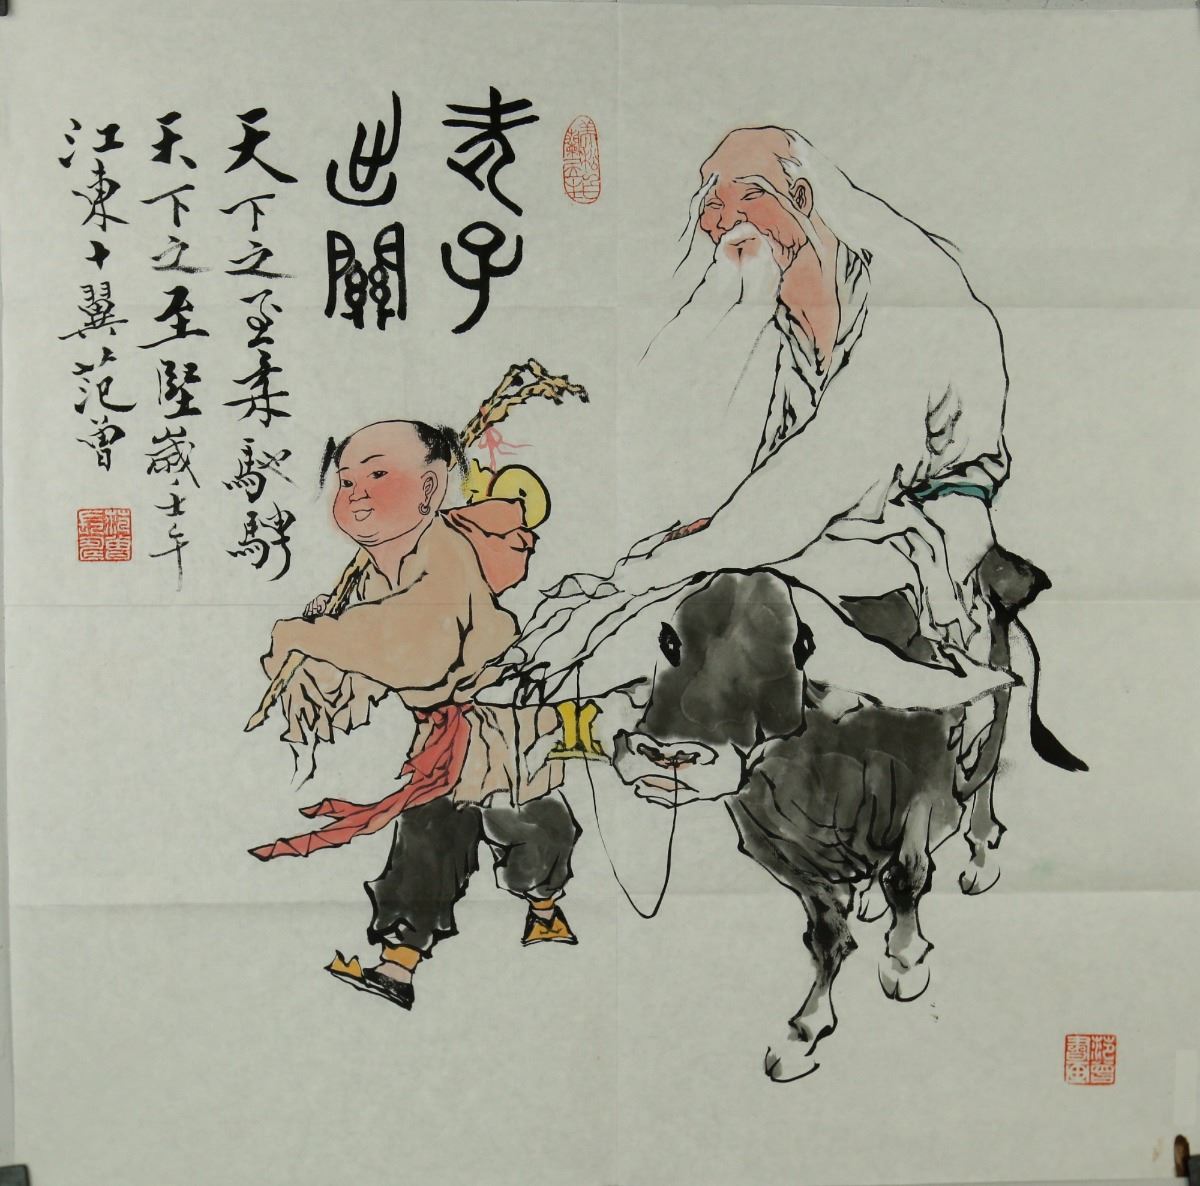 老子
出關
天下之至柔馳騁
天下之至堅歲壬午
江東十翼范曾